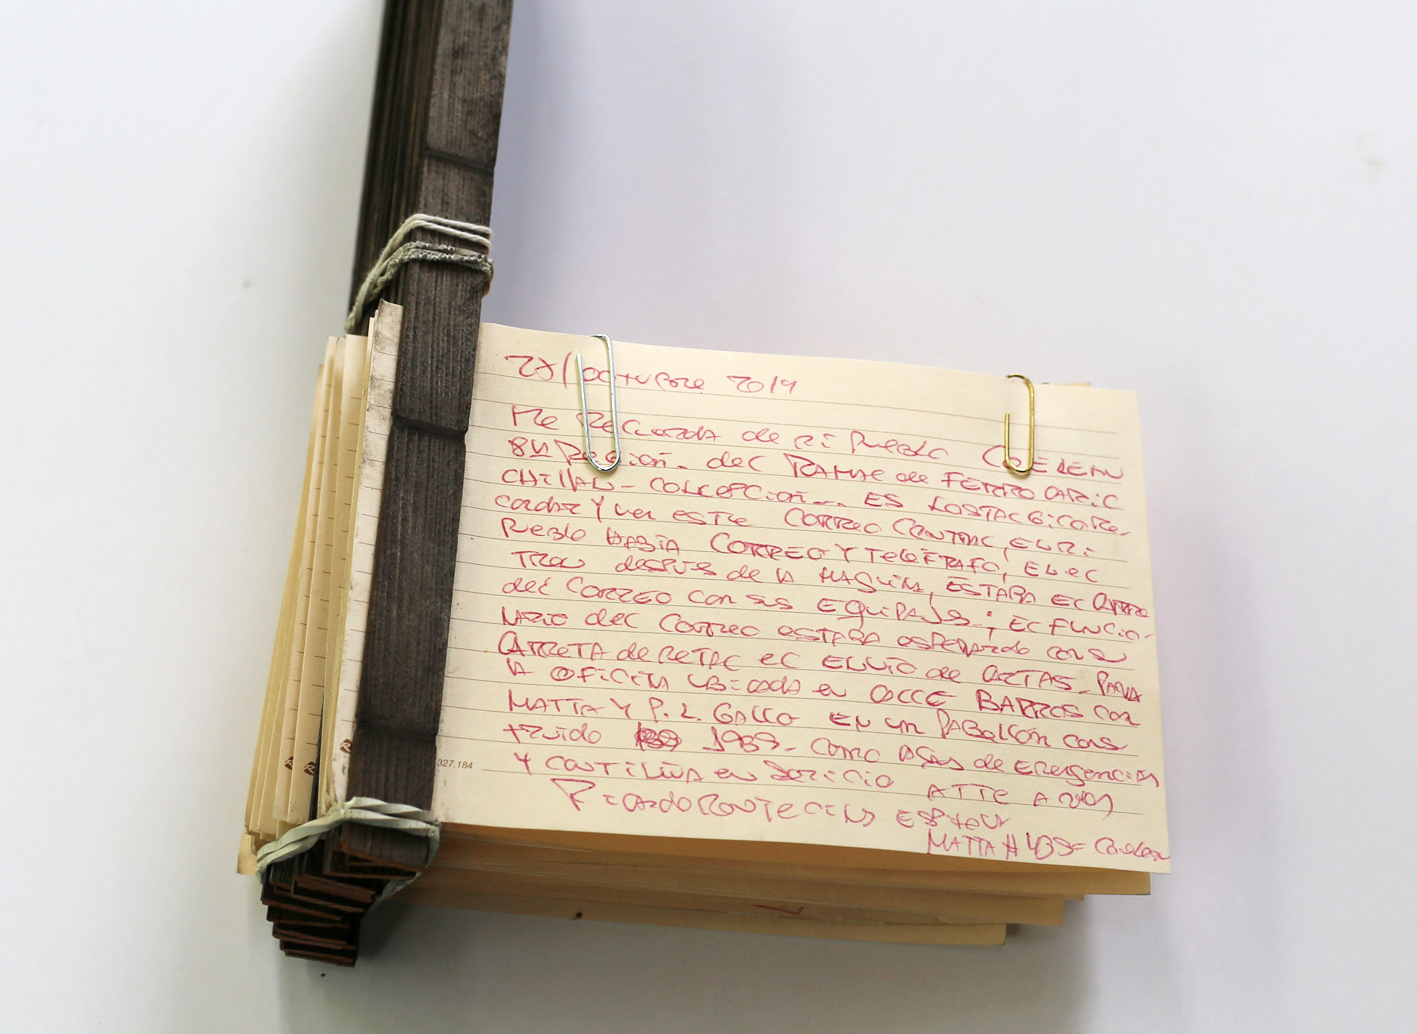 27/octubre 2019
Me Recuerda de mi Pueblo COELEMU
8va Región. del RAMAL de FERROCARRIL
CHILLAN - CONCEPCION... ES NOSTALGICO RE
cordar Y ver este CORREO CENTRAL, EN MI
Pueblo HABIA CORREO Y TELEGRAFO, EN EL
TREN despues de LA MAQUINA, ESTABA EL CARRO
del CORREO con sus EQUIPAJES; EL FUNCIO-
NARIO del CORREO ESTABA esperando con su
CARRETA de RETAL EL ENVIO de CARTAS. PARA
LA OFICINA UBICADA en CALLE BARROS CON
MATTA Y P. L. GALLO EN UN PABELLON CONS
truido 1939- como CASAS de EMERGENCIAS
Y CONTINUA en SERVICIO ATTE A
327.184
Ricardo ESPAÑA
MATTA # 439-